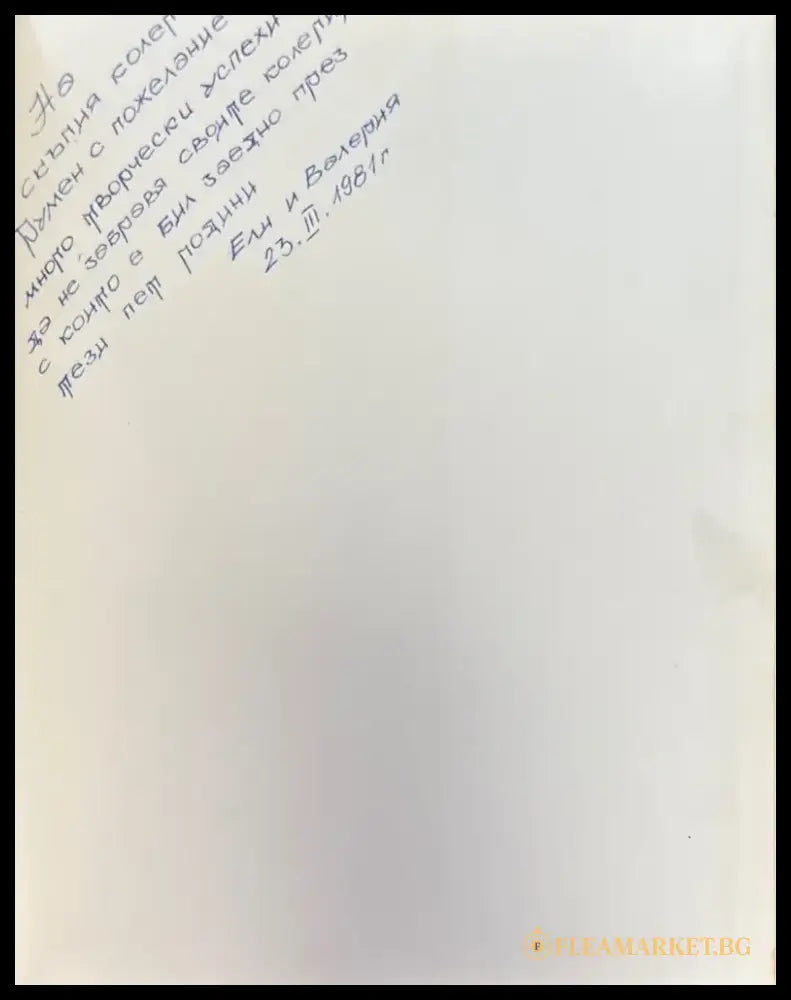 На
скъпия колег
Румен с пожелание
много творчески успехи
да не забравя своите колеги,
с които е бил заедно през
тези пет години
Ели и Валерия
23.III.1981г
FLEAMARKET.BG